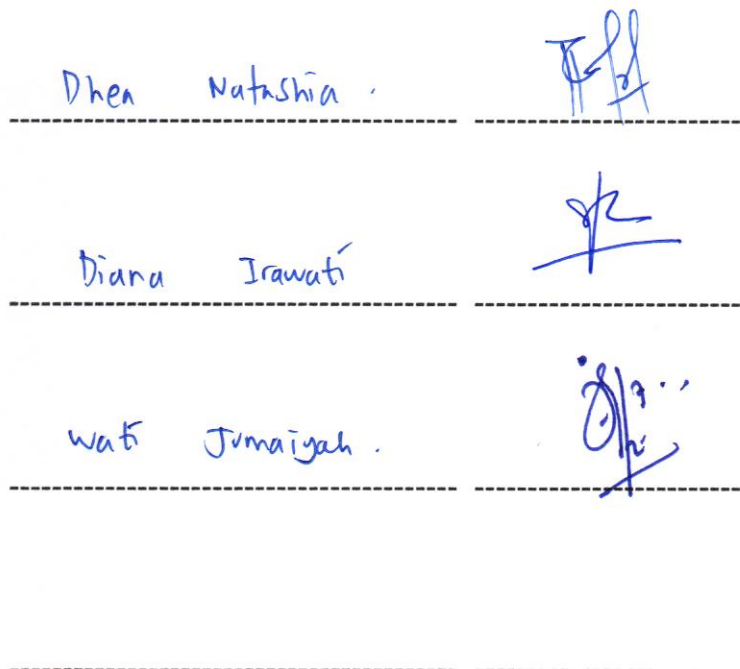 Dhea Natashia.
Diana Irawati
Wati Jumaiyah.